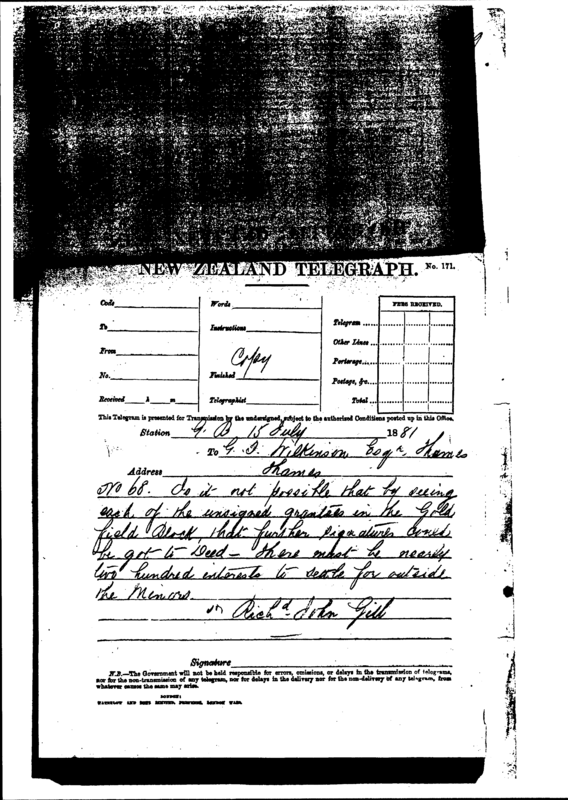 NEW ZEALAND TELEGRAPH. No. 171.
Code
Words
FEES RECEIVED.
To
Instructions
Telegram
Other Lines
From
Copy
Porterage
No.
Finished
Postage, &c.
Received h m
Telegraphist
Total
This Telegram is presented for Transmission by the undersigned, subject to the authorised Conditions posted up in this Office.
Station G. B 15 July 1881
To G. T. Wilkinson Esqr, Thames
Address Thames
No 68. Is it not possible that by seeing
each of the unsigned grantees in the Gold
field Block, that further signatures could
be got to Deed – there must be nearly
two hundred interests to settle for outside
the Minors.
Richd. John Gill
Signature
N.B.—The Government will not be held responsible for errors, omissions, or delays in the transmission of telegrams,
nor for the non-transmission of any telegram, nor for delays in the delivery nor for the non-delivery of any telegram, from
whatever causes the same may arise.